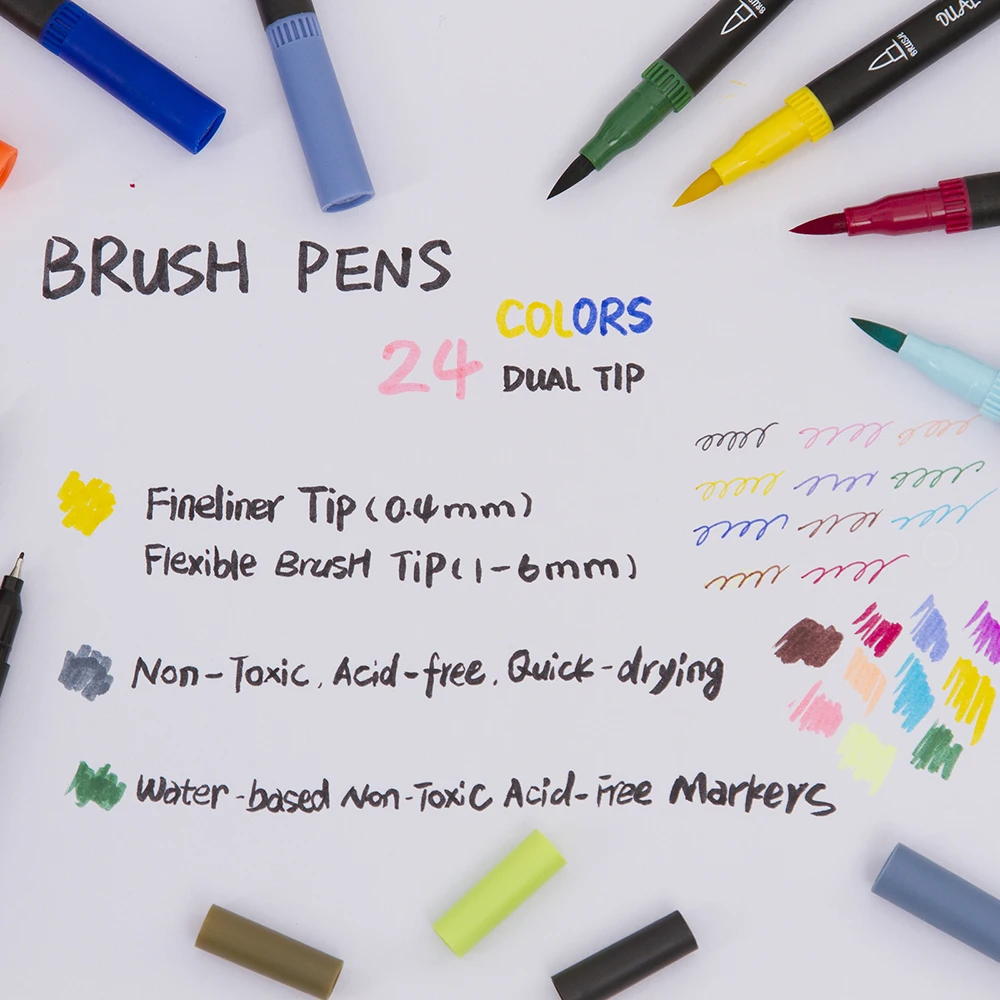 BRUSH
BRUSH
DUAL
BRUSH PENS
COLORS
24
DUAL TIP
Fineliner Tip (0.4mm)
Flexible Brush Tip (1-6mm)
Non-Toxic, Acid-free, Quick-drying
Water-based Non-Toxic Acid-Free Markers